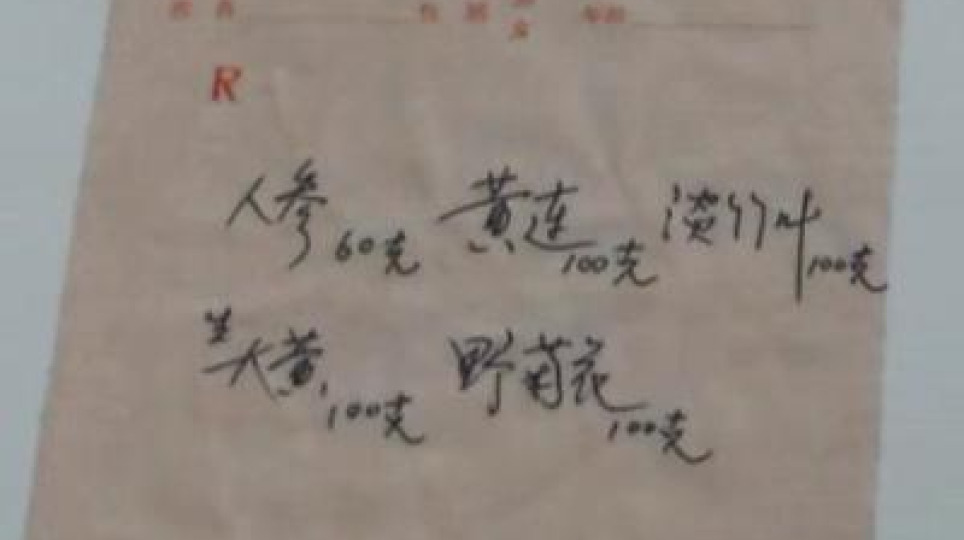 姓名 性别 男 女 年龄
R
人参60克 黄连100克 淡竹叶100克
生大黄100克 野菊花100克